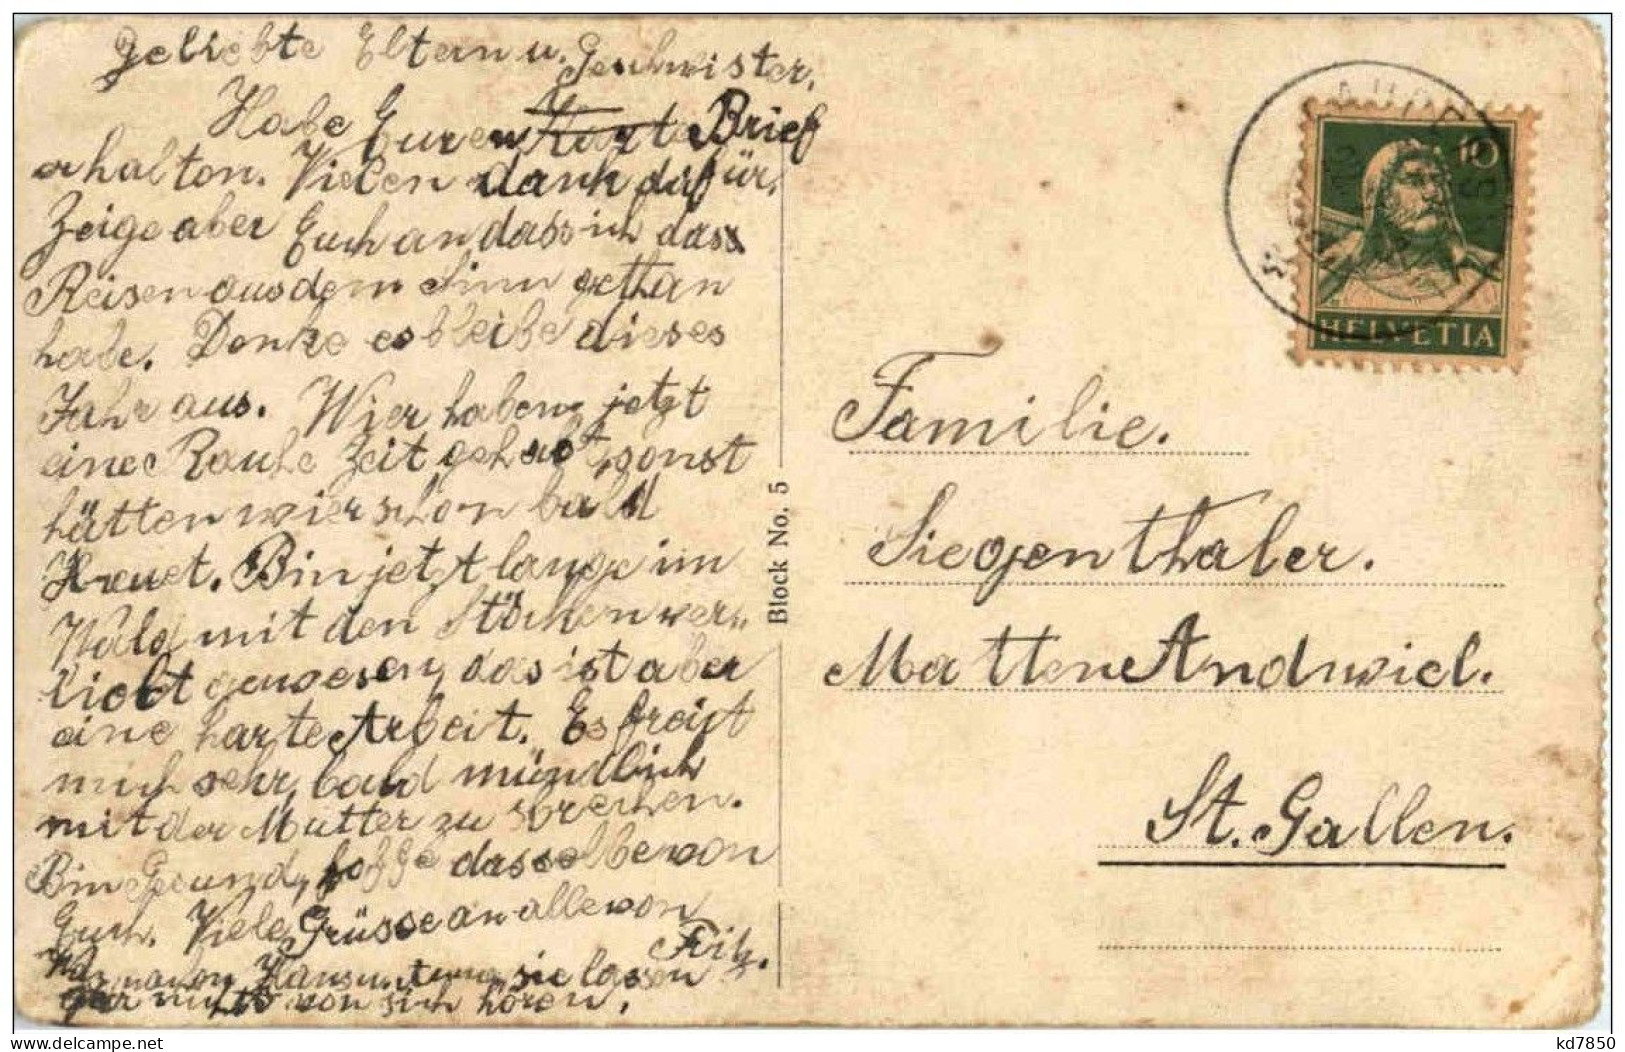 Geliebte Eltern u. Geschwister.
Habe Euren Karte Brief
erhalten. Vielen dank dafür.
Zeige aber Euch an dass ich dass
Reisen aus dem Sinn gethan
habe. Denke es bleibe dieses
Jahr aus. Wier haben jetzt
eine Rauhe Zeit gehabt, sonst
hätten wier schon bald
Heuet. Bin jetzt lange im
Wald mit den Stöcken ver„
liebt gewesen, das ist aber
eine harte Arbeit. Es freift
mich sehr, bald mündlich
mit der Mutter zu sprechen.
Bin Gesund, hoffe dasselbe von
Euch. Viele Grüsse an alle von
Fritz.
Was machen Hans u. Anna sie lassen
gar nichts von sich hören.
Block No. 5
10
HELVETIA
Familie.
Siegenthaler.
Matten Andwiel.
St. Gallen.
kd7850